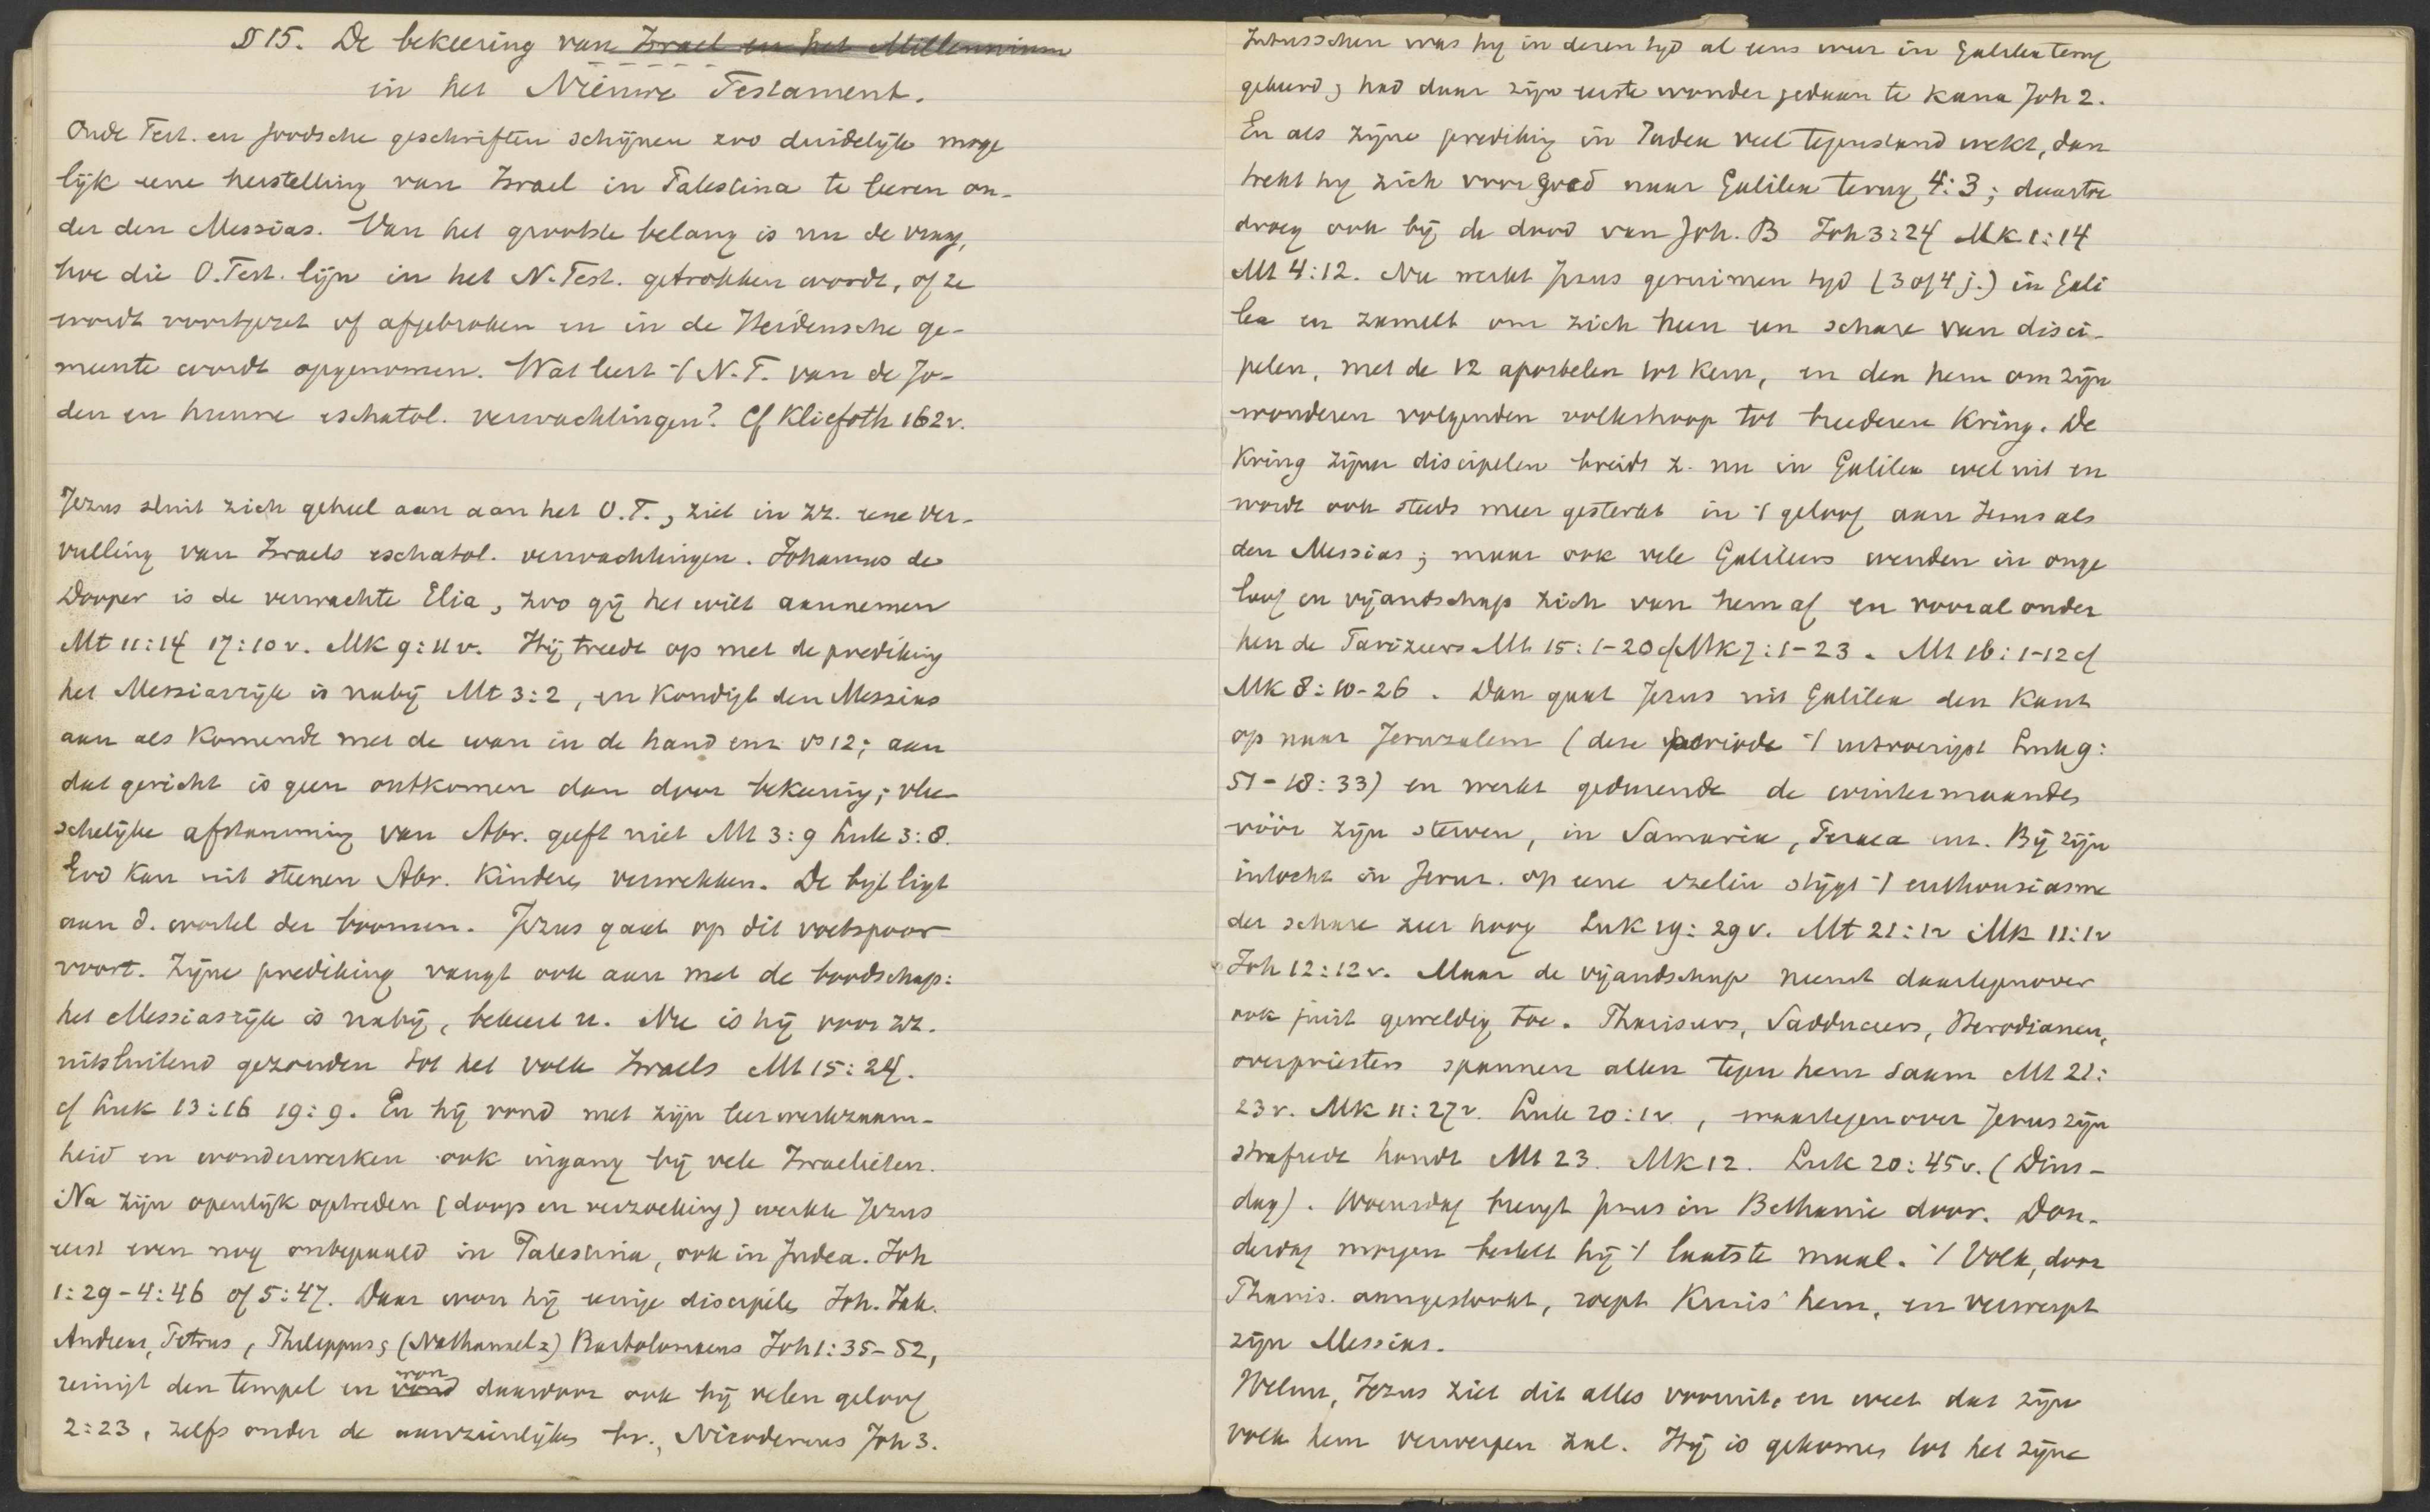 § 15. De bekeering van Israel en het Millennium
in het Nieuwe Testament.
Oude Test. en Joodsche geschriften schijnen zoo duidelijk moge
lijk eene herstelling van Israel in Palestina te leeren on-
der den Messias. Van het grootste belang is nu de vraag,
hoe die O.Test. lijn in het N.Test. getrokken wordt, of ze
wordt voortgezet of afgebroken en in de Heidensche ge-
meente wordt opgenomen. Wat leert 't N.T. van de Jo-
den en hunne eschatol. verwachtingen? Cf Kliefoth 162v.
Jezus sluit zich geheel aan aan het O.T., ziet in zz. eene ver-
vulling van Israels eschatol. verwachtingen. Johannes de
Dooper is de verwachte Elia, zoo gij het wilt aannemen
Mt 11:14 17:10v. Mk 9:11v. Hij treedt op met de prediking
het Messiasrijk is nabij Mt 3:2, en kondigt den Messias
aan als komende met de wan in de hand enz vs 12; aan
dat gericht is geen ontkomen dan door bekeering; vlee-
schelijke afstamming van Abr. geeft niet Mt 3:9 Luk 3:8.
God kan uit steenen Abr. kinderen verwekken. De bijl ligt
aan d. wortel der boomen. Jezus gaat op dit voetspoor
voort. Zijne prediking vangt ook aan met de boodschap:
het Messiasrijk is nabij, bekeert u. Nu is hij voor zz.
uitsluitend gezonden tot het volk Israels Mt 15:24.
cf Luk 13:16 19:9. En hij vond met zijn leerwerkzaam-
heid en wonderwerken ook ingang bij vele Israelieten.
Na zijn openlijk optreden (doop en verzoeking) werkte Jezus
eerst even nog onbepaald in Palestina, ook in Judea. Joh
1:29-4:46 of 5:47. Daar won hij eenige discipels Joh. Jak.
Andreas, Petrus, Philippus, (Nathanael=) Bartolomaeus Joh 1:35-52,
reinigt den tempel en vond won daardoor ook bij velen geloof
2:23, zelfs onder de aanzienlijken bv. Nicodemus Joh 3.
Intusschen was hij in dezen tijd al eens weer in Galilea terug
gekeerd, had daar zijn eerste wonder gedaan te Kana Joh 2.
En als zijne prediking in Judea veel tegenstand wekt, dan
trekt hij zich voor goed naar Galilea terug 4:3; daartoe
droeg ook bij de dood van Joh. B Joh 3:24 Mk 1:14
Mt 4:12. Nu werkt Jezus geruimen tijd (3 of 4 j.) in Gali
lea en zamelt om zich heen een schare van disci-
pelen, met de 12 apostelen tot kern, en den hem om zijn
wonderen volgenden volkshoop tot breederen kring. De
kring zijner discipelen breidt z. nu in Galilea wel uit en
wordt ook steeds meer gesterkt in 't geloof aan Jezus als
den Messias; maar ook vele Galileers wenden in onge
loof en vijandschap zich van hem af en vooral onder
hen de Farizeers Mt 15:1-20 cf Mk 7:1-23. Mt 16:1-12 cf
Mk 8:10-26. Dan gaat Jezus uit Galilea den kant
op naar Jeruzalem (deze periode 't uitvoerigst Luk 9:
51-18:33) en werkt gedurende de wintermaanden
vóór zijn sterven, in Samaria, Peraea enz. Bij zijn
intocht in Jeruz. op eene ezelin stijgt 't enthousiasme
der schare zeer hoog Luk 19:29v. Mt 21:1v Mk 11:1v
Joh 12:12v. Maar de vijandschap neemt daartegenover
ook juist geweldig toe. Phariseers, Sadduceers, Herodianen,
overpriesters spannen allen tegen hem saam Mt 21:
23v. Mk 11:27v. Luk 20:1v, waartegenover Jezus zijn
strafrede houdt Mt 23. Mk 12. Luk 20:45v. (Dins-
dag). Woensdag brengt Jezus in Bethanie door. Don-
derdag morgen bestelt hij 't laatste maal. 't Volk, door
Pharis. aangestookt, roept Kruis' hem, en verwerpt
zijn Messias.
Welnu, Jezus ziet dit alles vooruit, en weet dat zijn
volk hem verwerpen zal. Hij is gekomen tot het zijne